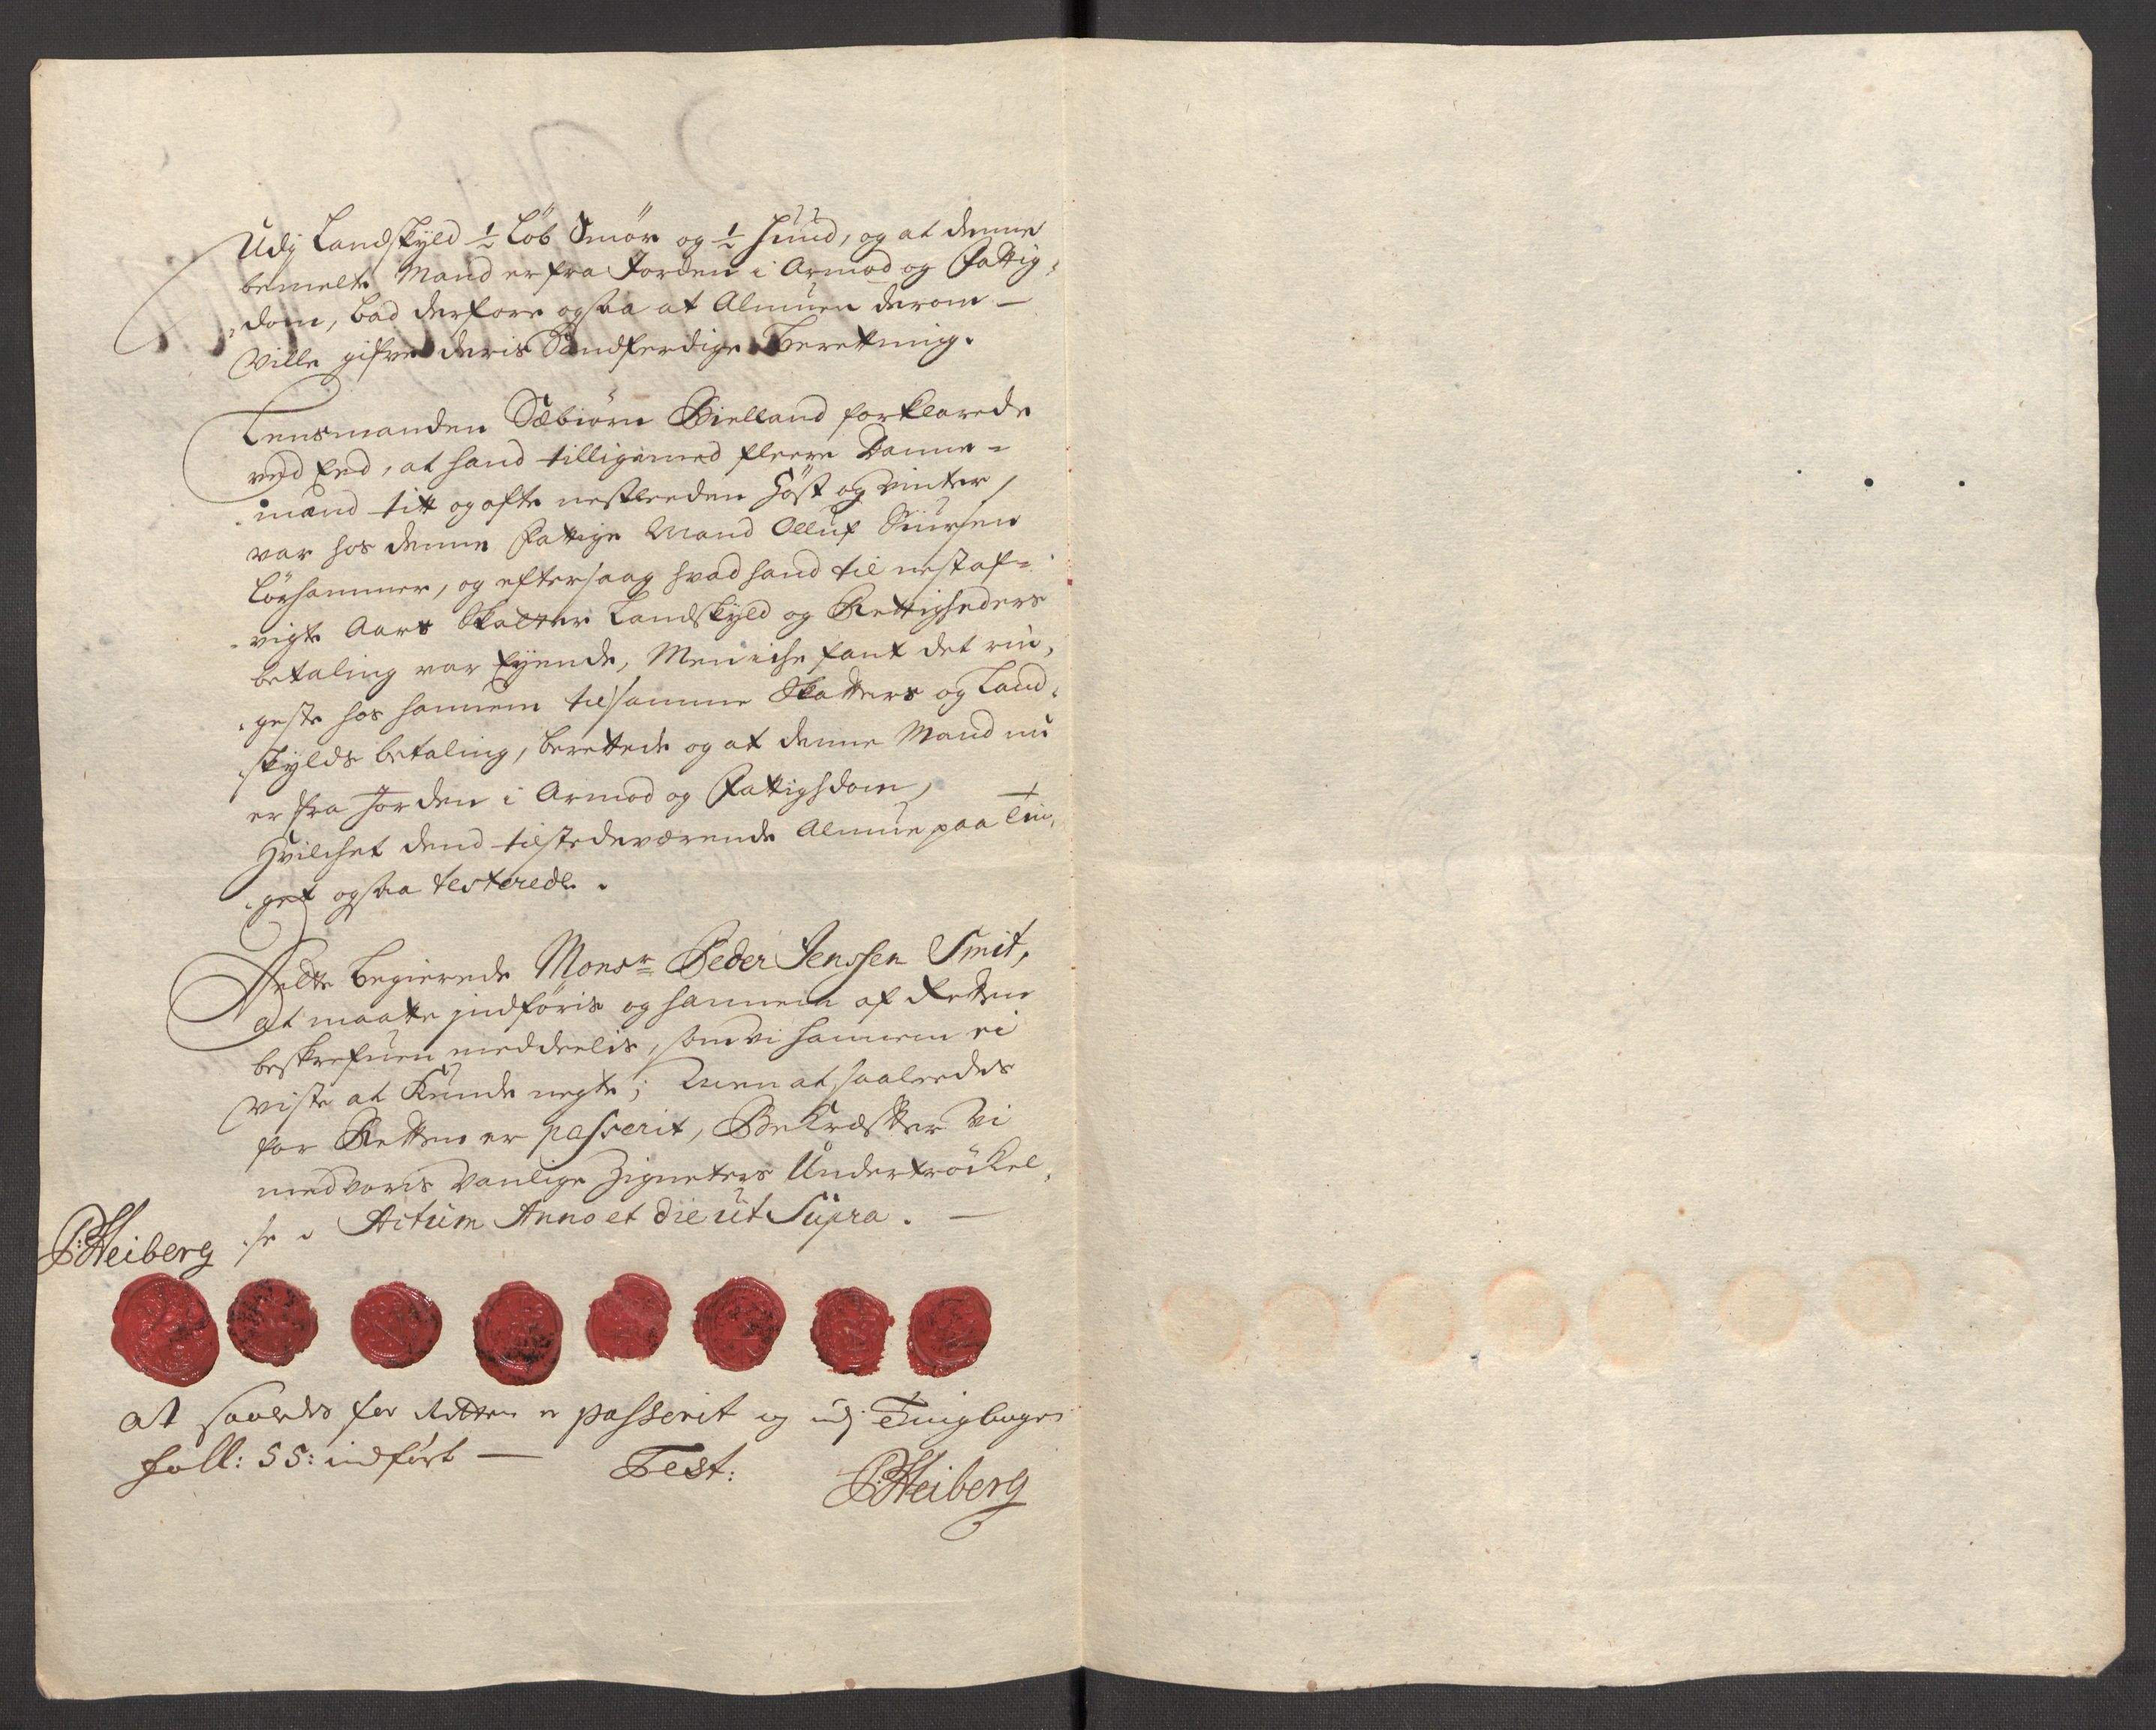 Udj Landskyld ½ Löb Smör og ½ huud, og at denne
bemelte Mand er fra Jorden i Armod og Fattig,
,dom, bad derfore ogsaa at Almuen derom —
Ville gifve deris Sandferdige Berettning.
Lensmanden Sæbiørn Bielland forklarede
ved Eed, at hand tilligemed fleere Danne-
mænd titt og ofte nestleeden Höst og Vinter,
var hos denne Fattige Mand Olluf Siursen
Lörhammer, og eftersaag hvad hand til nestaf-
vigte Aars Skatter Landskyld og Rettigheders
betaling var Eyende, Men iche fant det rin,
,geste hos hannem til samme Skatters og Land,
,skylds betaling, berettede og at denne Mand nu
er fra Jorden i Armod og Fattigsdom,
Hvilchet dend tilstedeværende Almue paa Tin,
,get ogsaa testerede.
Dette begierede Monsr Peder Jenssen Smit,
at maatte indföris og hannem af Retten
beskrefuen meddeelis, som vi hannem ei
viste at Kunde negte; Men at saaledes
for Retten er passerit, Bekræfter vi
med voris vanlige Zigneters Undertröckel,
,se. Actum Anno et die ut Supra. —
P:Heiberg
at saaledes for Retten er passerit og udj Tingbogen
foll: 55: indført — Test:
P:Heiberg